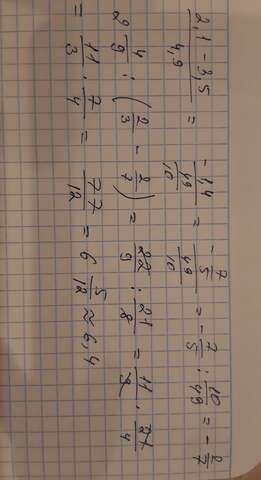 2,1 - 3,5 / 4,9 = -1,4 / 49/10 = - 7/5 / 49/10 = - 7/5 : 10/49 = - 2/7
2 4/9 : ( 2/3 - 2/7 ) = 22/9 : 21/8 = 11/3 · 21/4
= 11/3 · 7/4 = 77/12 = 6 5/12 ≈ 6,4